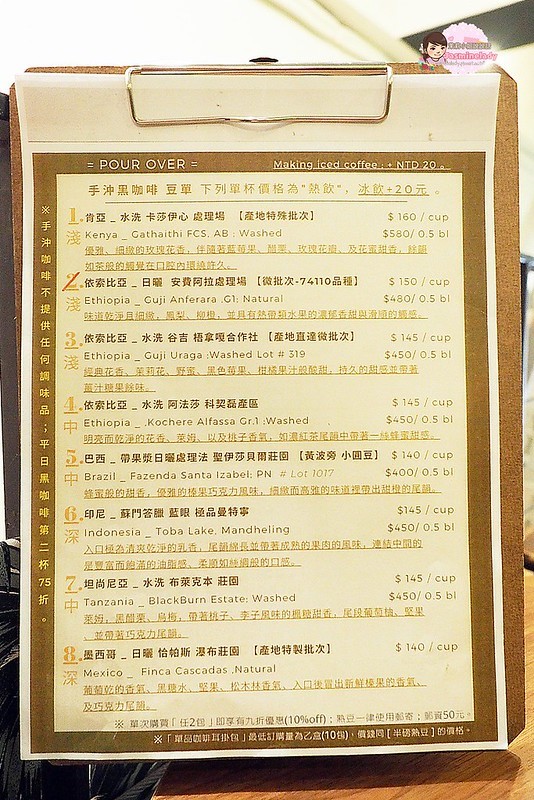 Jasminelady
= POUR OVER =
Making iced coffee : + NTD 20 。
手沖黑咖啡 豆單 下列單杯價格為"熱飲", 冰飲+20元 。
※手沖咖啡不提供任何調味品；平日黑咖啡第二杯75折。
1. 肯亞 _ 水洗 卡莎伊心 處理場 【產地特殊批次】 $ 160 / cup
淺 Kenya _ Gathaithi FCS, AB ; Washed $580/ 0.5 bl
優雅、細緻的玫瑰花香，伴隨著藍莓果、醋栗、玫瑰花瓣、及花蜜甜香，餘韻
如茶般的觸覺在口腔內環繞許久。
2. 依索比亞 _ 日曬 安費阿拉處理場 【微批次-74110品種】 $ 150 / cup
淺 Ethiopia _ Guji Anferara .G1; Natural $480/ 0.5 bl
味道乾淨且細緻，鳳梨、柳橙，並具有熱帶類水果的濃郁香甜與滑順的觸感。
3. 依索比亞 _ 水洗 谷吉 梧拿嘎合作社 【產地直達微批次】 $ 145 / cup
淺 Ethiopia _ Guji Uraga ;Washed Lot # 319 $450/ 0.5 bl
經典花香、茉莉花、野蜜、黑色莓果、柑橘果汁般酸甜，持久的甜感並帶著
蔗汁糖果餘味。
4. 依索比亞 _ 水洗 阿法莎 科契磊產區 $ 145 / cup
中 Ethiopia _ .Kochere Alfassa Gr.1 ;Washed $450/ 0.5 bl
明亮而乾淨的花香、萊姆、以及桃子香氣，如濃紅茶尾韻中帶著一絲蜂蜜甜感。
5. 巴西 _ 帶果漿日曬處理法 聖伊莎貝爾莊園 【黃波旁 小圓豆】 $ 140 / cup
中 Brazil _ Fazenda Santa Izabel; PN # Lot 1017 $400/ 0.5 bl
蜂蜜般的甜香，優雅的榛果巧克力風味，細緻而高雅的味道裡帶出甜橙的尾韻。
6. 印尼 _ 蘇門答臘 藍眼 極品曼特寧 $145 / cup
深 Indonesia _ Toba Lake, Mandheling $450/ 0.5 bl
入口極為清爽乾淨的乳香，尾韻綿長並帶著成熟的果肉的風味，連結中間的
是豐富而飽滿的油脂感、柔順如絲綢般的口感。
7. 坦尚尼亞 _ 水洗 布萊克本 莊園 $ 145 / cup
中 Tanzania _ BlackBurn Estate; Washed $450/ 0.5 bl
萊姆，黑醋栗、烏梅，帶著桃子、李子風味的楓糖甜香，尾段葡萄柚、堅果
、並帶著巧克力尾韻。
8. 墨西哥 _ 日曬 恰帕斯 瀑布莊園 【產地特製批次】 $ 140 / cup
深 Mexico _ Finca Cascadas ,Natural
葡萄乾的香氣、黑糖水、堅果、松木林香氣、入口後冒出新鮮榛果的香氣，
及巧克力尾韻。
※ 單次購買「任2包」即享有九折優惠(10%off)；熟豆一律使用郵寄；郵資50元。
※「單品咖啡耳掛包」最低訂購量為乙盒(10包)，價錢同[半磅熟豆]的價格。